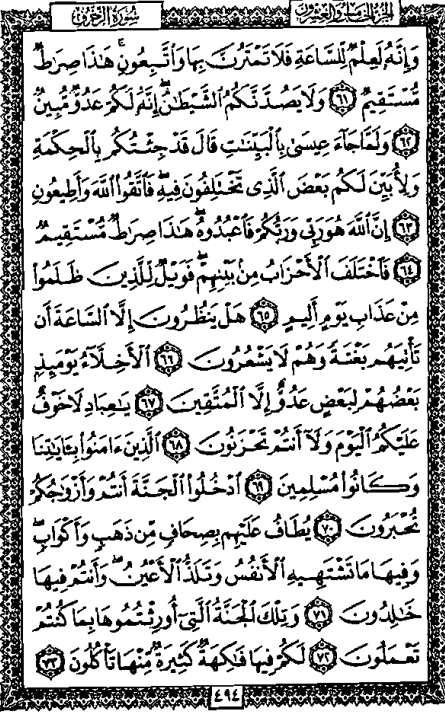 الجزء الخامس والعشرون سورة الزخرف
وَإِنَّهُ لَعِلْمٌ لِّلسَّاعَةِ فَلَا تَمْتَرُنَّ بِهَا وَاتَّبِعُونِ ۚ هَٰذَا صِرَاطٌ
مُّسْتَقِيمٌ ٦١ وَلَا يَصُدَّنَّكُمُ الشَّيْطَانُ ۖ إِنَّهُ لَكُمْ عَدُوٌّ مُّبِينٌ
٦٢ وَلَمَّا جَاءَ عِيسَىٰ بِالْبَيِّنَاتِ قَالَ قَدْ جِئْتُكُم بِالْحِكْمَةِ
وَلِأُبَيِّنَ لَكُم بَعْضَ الَّذِي تَخْتَلِفُونَ فِيهِ ۖ فَاتَّقُوا اللَّهَ وَأَطِيعُونِ
٦٣ إِنَّ اللَّهَ هُوَ رَبِّي وَرَبُّكُمْ فَاعْبُدُوهُ ۚ هَٰذَا صِرَاطٌ مُّسْتَقِيمٌ
٦٤ فَاخْتَلَفَ الْأَحْزَابُ مِن بَيْنِهِمْ ۖ فَوَيْلٌ لِّلَّذِينَ ظَلَمُوا
مِنْ عَذَابِ يَوْمٍ أَلِيمٍ ٦٥ هَلْ يَنظُرُونَ إِلَّا السَّاعَةَ أَن
تَأْتِيَهُم بَغْتَةً وَهُمْ لَا يَشْعُرُونَ ٦٦ الْأَخِلَّاءُ يَوْمَئِذٍ
بَعْضُهُمْ لِبَعْضٍ عَدُوٌّ إِلَّا الْمُتَّقِينَ ٦٧ يَا عِبَادِ لَا خَوْفٌ
عَلَيْكُمُ الْيَوْمَ وَلَا أَنتُمْ تَحْزَنُونَ ٦٨ الَّذِينَ ءَامَنُوا بِـَٔايَاتِنَا
وَكَانُوا مُسْلِمِينَ ٦٩ ادْخُلُوا الْجَنَّةَ أَنتُمْ وَأَزْوَاجُكُمْ
تُحْبَرُونَ ٧٠ يُطَافُ عَلَيْهِم بِصِحَافٍ مِّن ذَهَبٍ وَأَكْوَابٍ ۖ
وَفِيهَا مَا تَشْتَهِيهِ الْأَنفُسُ وَتَلَذُّ الْأَعْيُنُ ۖ وَأَنتُمْ فِيهَا
خَالِدُونَ ٧١ وَتِلْكَ الْجَنَّةُ الَّتِي أُورِثْتُمُوهَا بِمَا كُنتُمْ
تَعْمَلُونَ ٧٢ لَكُمْ فِيهَا فَاكِهَةٌ كَثِيرَةٌ مِّنْهَا تَأْكُلُونَ ٧٣
٤٩٤